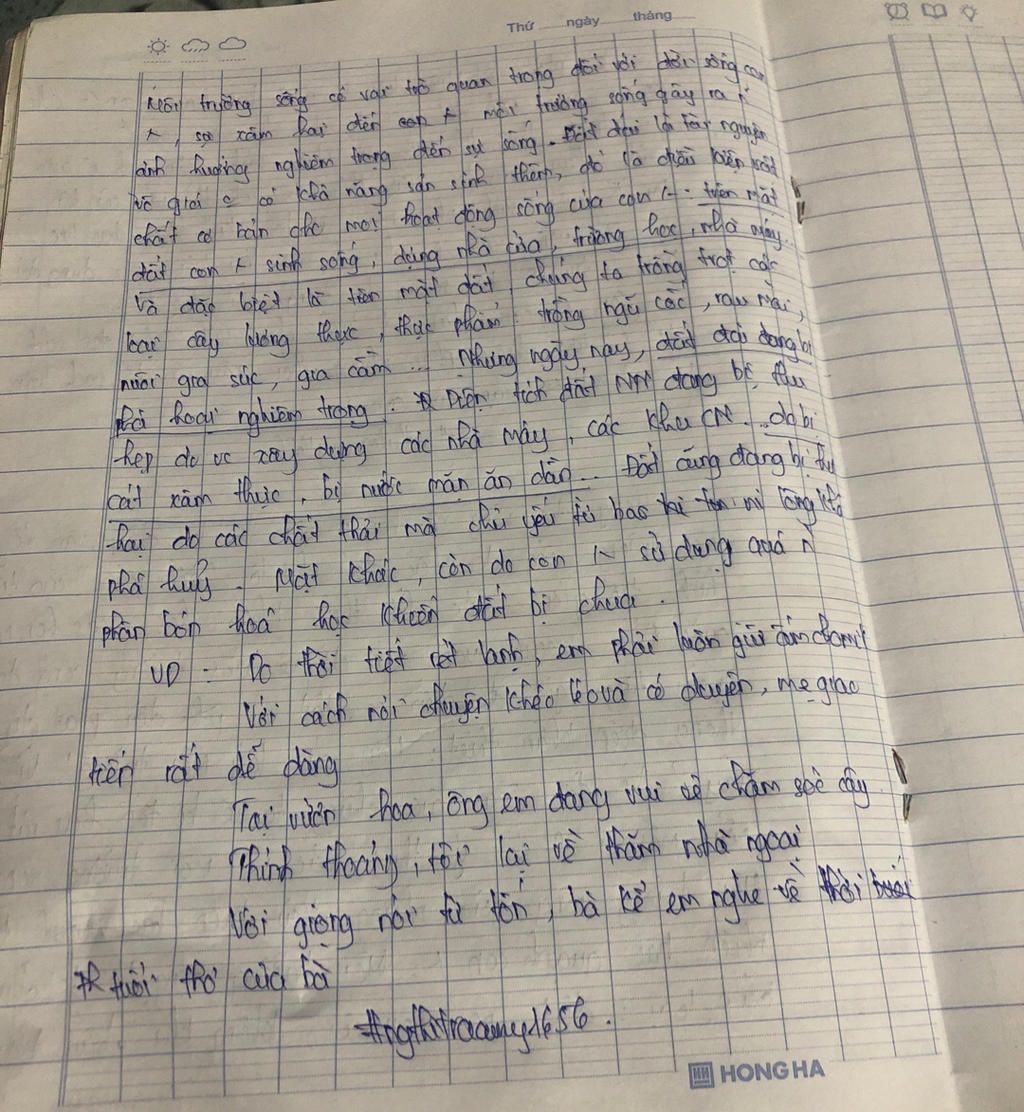 Thứ ngày tháng
Môi trường sống có vai trò quan trọng đối với đời sống con
, sự xâm hại đến môi trường sống gây ra
ảnh hưởng nghiêm trọng đến sự sống. Đất đai là tài nguyên
vô giá có khả năng sản sinh thêm, đó là điều kiện vật
chất cơ bản cho mọi hoạt động sống của con : trên mặt
đất con sinh sống, dựng nhà cửa, trường học, nhà máy
và đặc biệt là trên mặt đất, chúng ta trồng trọt các
loại cây lương thực, thực phẩm: trồng ngũ cốc, rau ,
nuôi gia súc, gia cầm... Nhưng ngày nay, đất đai đang bị
phá hoại nghiêm trọng. Diện tích đất NN đang bị thu
hẹp do vc xây dựng các nhà máy, các khu CN... do bị
cát xâm thực, bị nước mặn ăn dần... Đất cũng đang bị
hại do các chất thải mà chủ yếu từ bao bì ni lông khó
phá huỷ. Mặt khác, còn do con sử dụng quá
phân bón hoá học khiến đất bị chua.
VD: Do thời tiết rét lạnh, em phải luôn giữ ấm
Với cách nói chuyện khéo léo và có duyên, mẹ giao
tiếp rất dễ dàng
Tại vườn hoa, ông em đang vui vẻ chăm sóc cây
Thỉnh thoảng, tôi lại về thăm nhà ngoại
Với giọng nói từ tốn, bà kể em nghe về thời
tuổi thơ của bà
HH HONG HA